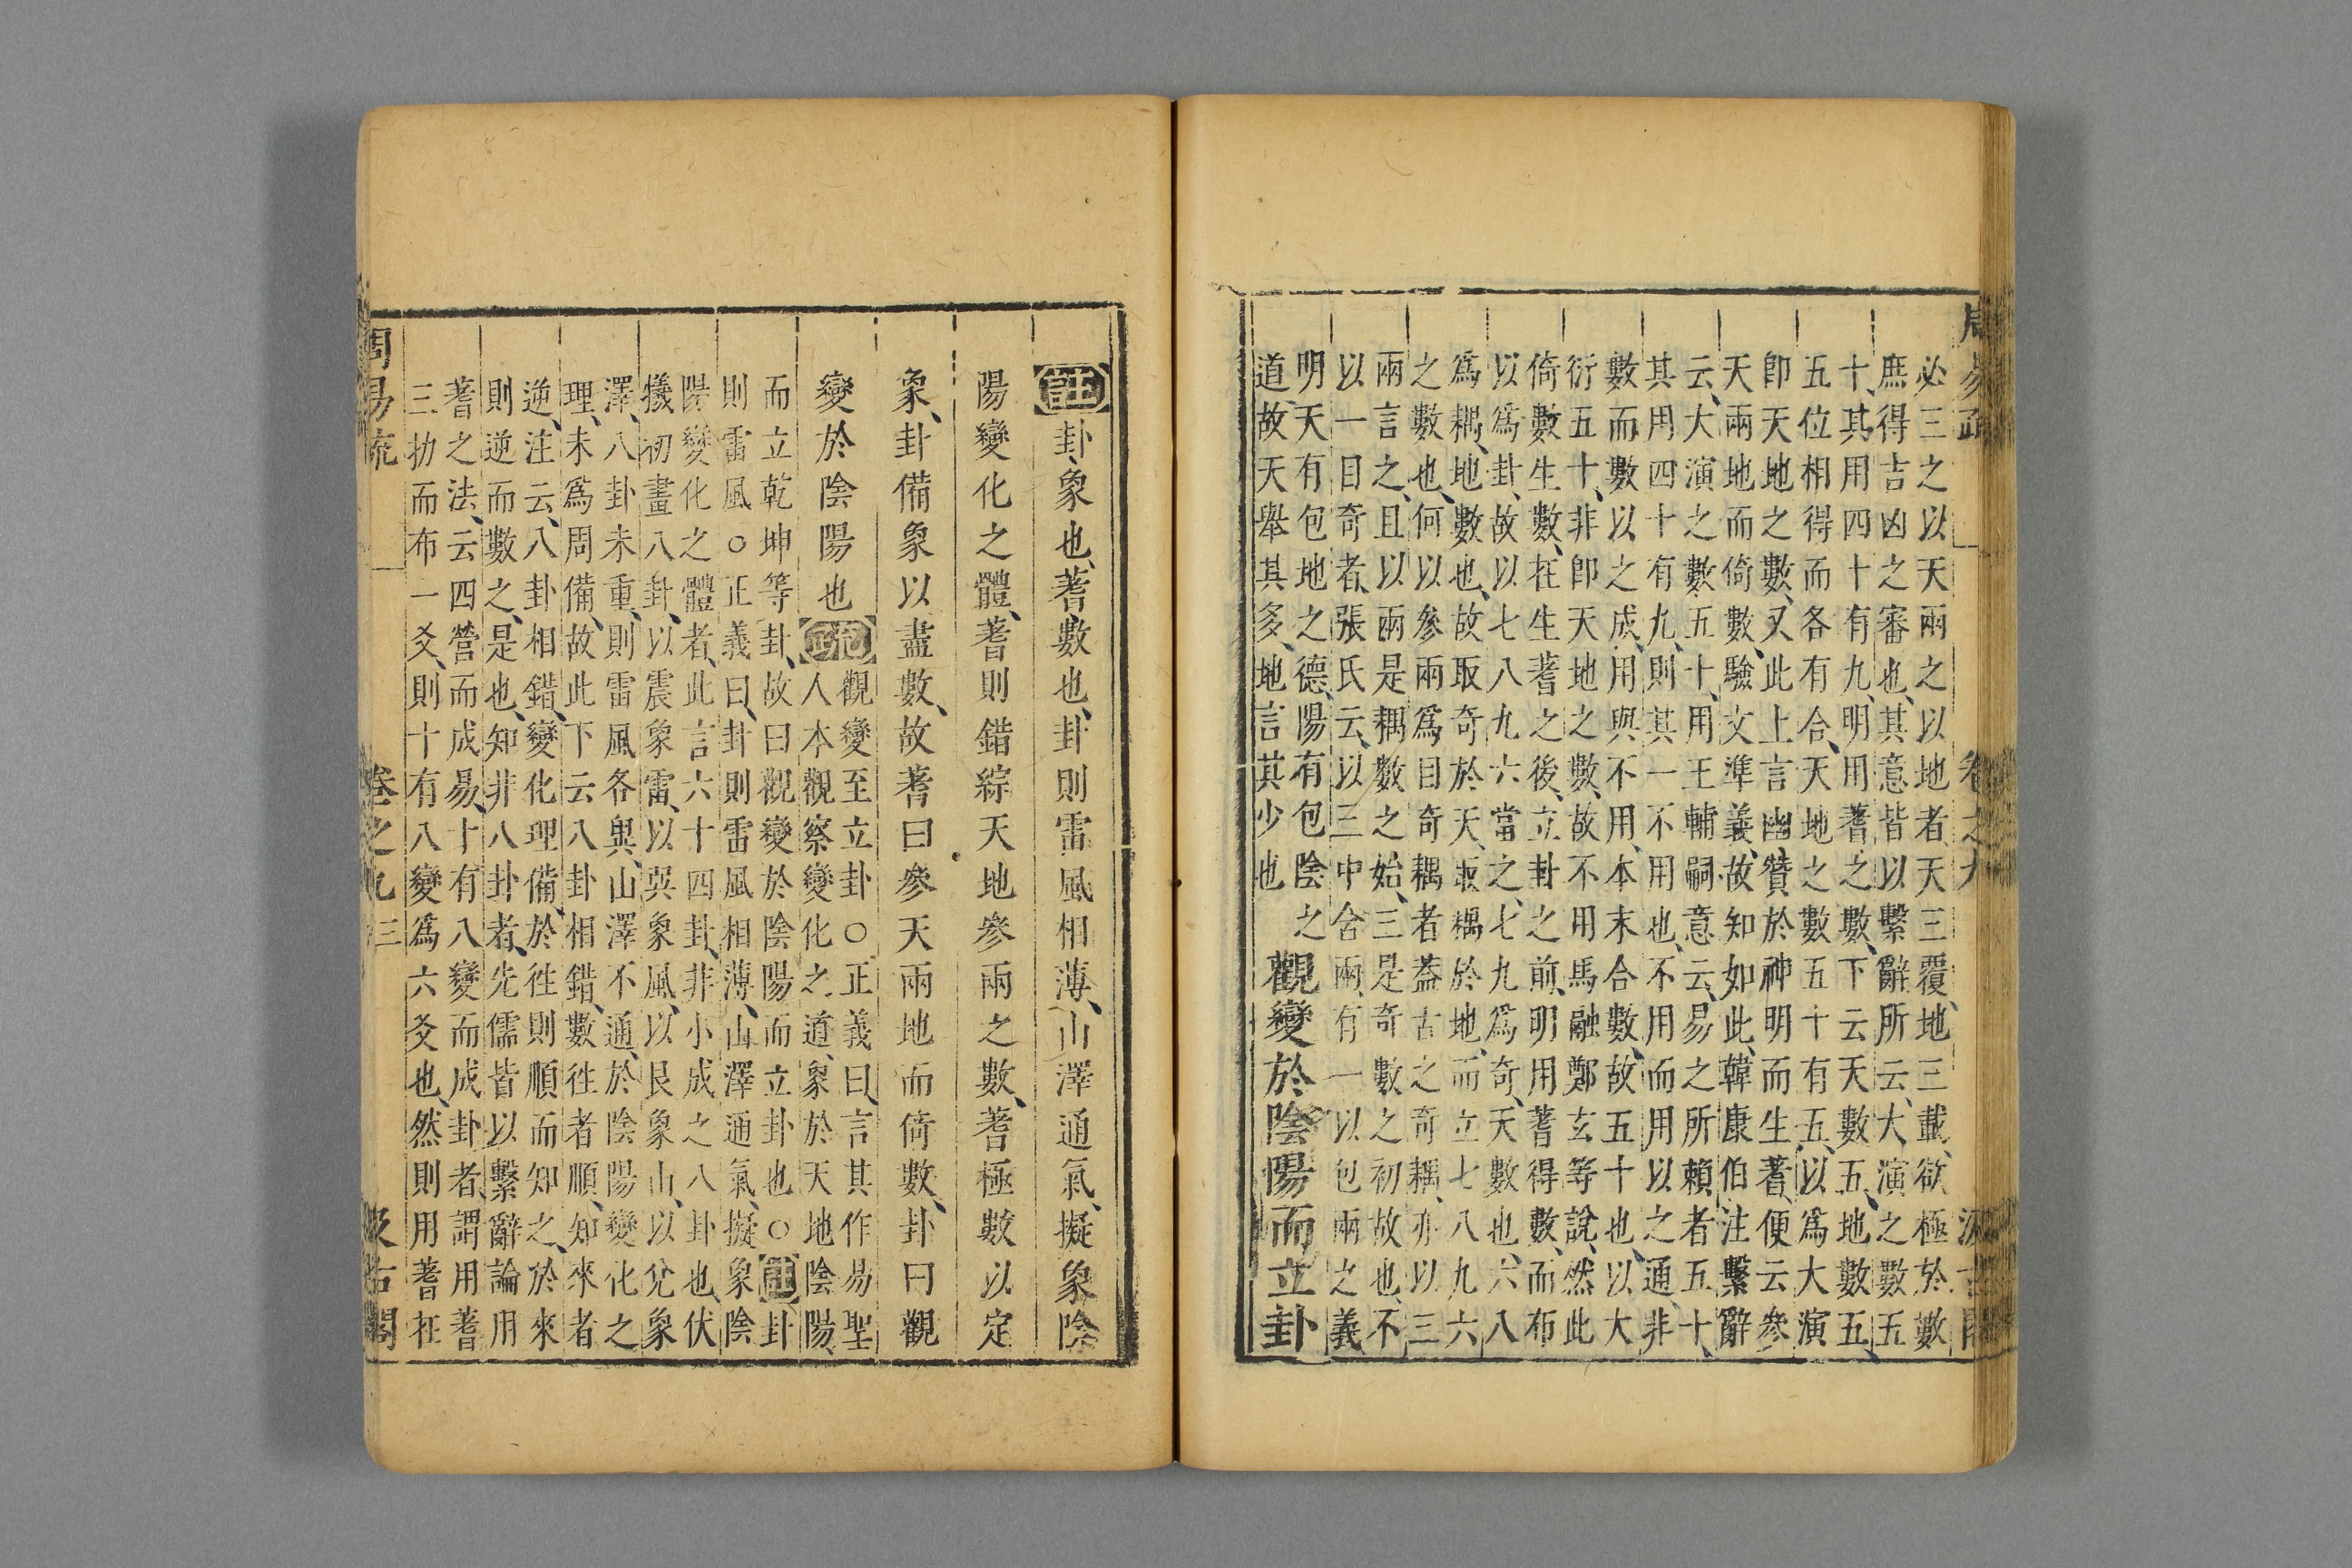 周易疏 卷之九 汲古閣
必三之以天兩之以地者天三覆地三載、欲極於數
庶得吉凶之審也、其意皆以繫辭所云、大演之數五
十、其用四十有九、明用蓍之數、下云天數五、地數五、
五位相得而各有合、天地之數五十有五、以爲大演
卽天地之數、又此上言幽贊於神明而生蓍、便云參
天兩地而倚數、驗文準義、故知如此、韓康伯注繫辭
云、大演之數五十、用王輔嗣意云、易之所賴者五十、
其用四十有九、則其一不用也、不用而用以之通、非
數而數以之成、用與不用、本末合數、故五十也、以大
衍五十、非卽天地之數、故不用馬融鄭玄等說、然此
倚數生數、在生蓍之後、立卦之前、明用蓍得數、而布
以爲卦、故以七八九六當之、七九爲奇、天數也、六八
爲耦、地數也、故取奇於天、取耦於地、而立七八九六
之數也、何以參兩爲目奇耦者、葢古之奇耦、亦以三
兩言之、且以兩是耦數之始、三是奇數之初故也、不
以一目奇者、張氏云、以三中含兩、有一以包兩之義
明天有包地之德、陽有包陰之
道、故天舉其多、地言其少也
觀變於陰陽而立卦
註卦、象也、蓍、數也、卦則雷風相薄、山澤通氣、擬象陰
陽變化之體、蓍則錯綜天地參兩之數、蓍極數以定
象、卦備象以盡數、故蓍曰參天兩地而倚數、卦曰觀
變於陰陽也
疏正觀變至立卦○正義曰、言其作易聖
人本觀察變化之道、象於天地陰陽、
而立乾坤等卦、故曰觀變於陰陽而立卦也○註卦
則雷風○正義曰、卦則雷風相薄、山澤通氣、擬象陰
陽變化之體者、此言六十四卦、非小成之八卦也、伏
犧初畫八卦、以震象雷、以巽象風、以艮象山、以兌象
澤、八卦未重、則雷風各異、山澤不通、於陰陽變化之
理、未爲周備、故此下云八卦相錯、數徃者順、知來者
逆、注云、八卦相錯、變化理備、於徃則順而知之、於來
則逆而數之、是也、知非八卦者、先儒皆以繫辭論用
蓍之法、云四營而成易、十有八變而成卦者、謂用蓍
三扐而布一爻、則十有八變爲六爻也、然則用蓍在
周易疏 卷之九 三 汲古閣